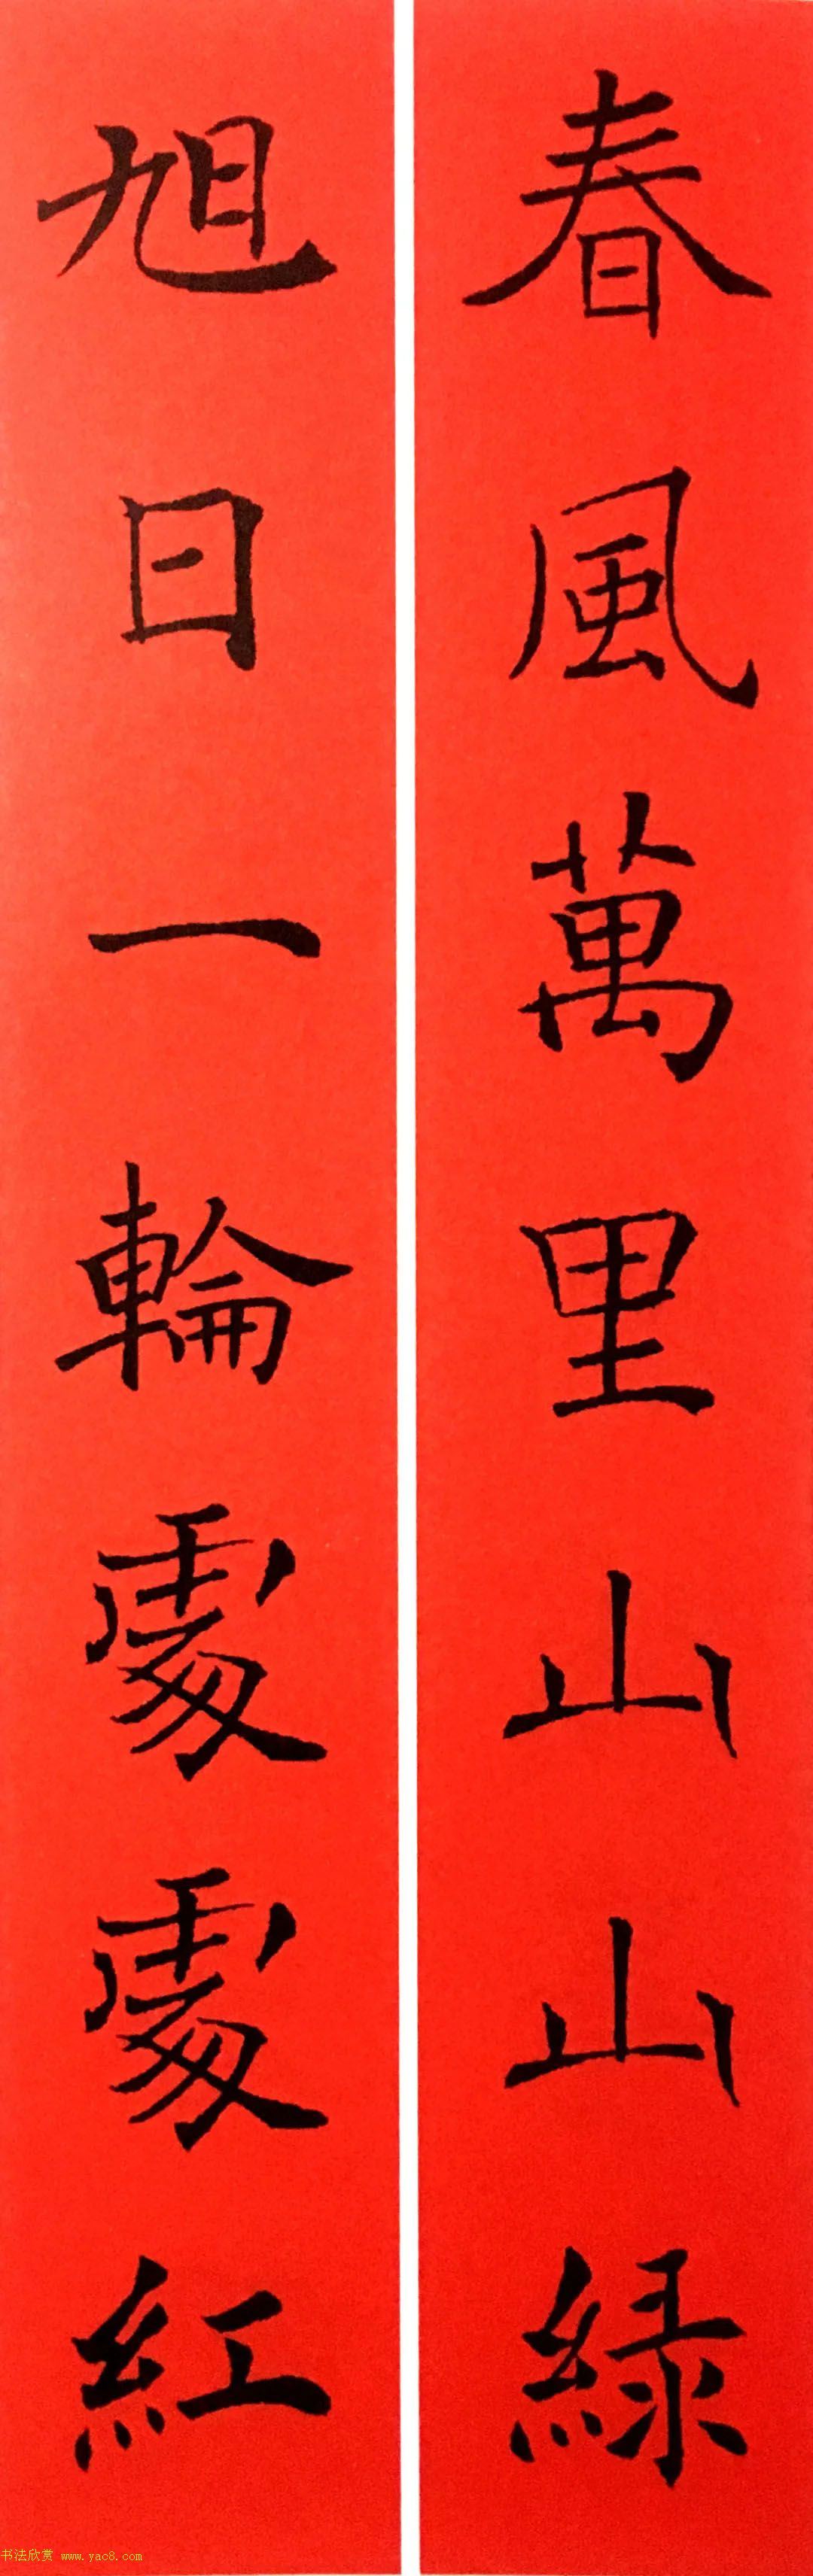 春風萬里山山緑
旭日一輪處處紅
书法欣赏 www.yac8.com